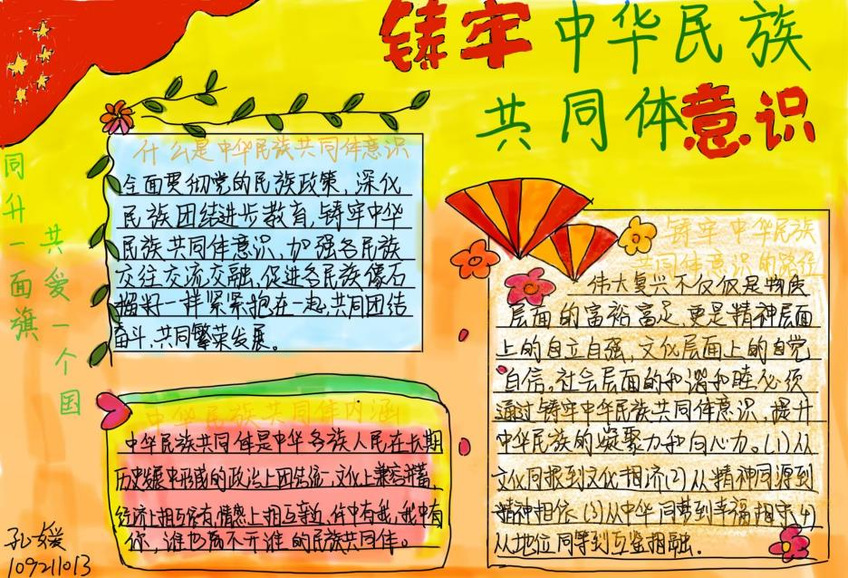 铸牢中华民族
共同体意识
同升一面旗
共爱一个国
什么是中华民族共同体意识
全面贯彻党的民族政策,深化
民族团结进步教育,铸牢中华
民族共同体意识,加强各民族
交往交流交融,促进各民族像石
榴籽一样紧紧抱在一起,共同团结
奋斗、共同繁荣发展。
中华民族共同体内涵
中华民族共同体是中华各族人民在长期
历史发展中形成的政治上团结统一,文化上兼容并蓄,
经济上相互依存,情感上相互亲近,你中有我,我中有
你,谁也离不开谁的民族共同体。
铸牢中华民族
共同体意识的路径
伟大复兴不仅仅是物质
层面的富裕富足,更是精神层面
上的自立自强,文化层面上的自觉
自信,社会层面的和谐和睦必须
通过铸牢中华民族共同体意识,提升
中华民族的凝聚力和向心力。(1)从
文化同报到文化相济(2)从精神同源到
精神相依(3)从中华同梦到幸福相守(4)
从地位同等到互鉴相融.
孔媛
109211013